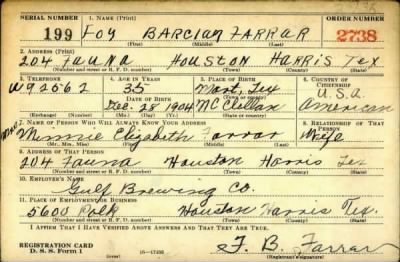 SERIAL NUMBER 1. NAME (Print) ORDER NUMBER
199 FOY BARCLAY FARRAR 2738
(First) (Middle) (Last)
2. ADDRESS (Print)
204 FAUNA HOUSTON HARRIS TEX
(Number and street or R. F. D. number) (Town) (County) (State)
3. TELEPHONE 4. AGE IN YEARS 5. PLACE OF BIRTH 6. COUNTRY OF CITIZENSHIP
W92562 35 Mart, Tex U.S.A
DATE OF BIRTH
Dec. 28 1904 McClellan American
(Exchange) (Number) (Mo.) (Day) (Yr.) (State or country)
7. NAME OF PERSON WHO WILL ALWAYS KNOW YOUR ADDRESS 8. RELATIONSHIP OF THAT PERSON
Mrs Minnie Elizabeth Farrar Wife
(Mr., Mrs., Miss) (First) (Middle) (Last)
9. ADDRESS OF THAT PERSON
204 Fauna Houston Harris Tex
(Number and street or R. F. D. number) (Town) (County) (State)
10. EMPLOYER'S NAME
Gulf Brewing Co.
11. PLACE OF EMPLOYMENT OR BUSINESS
5600 Polk Houston Harris Tex.
(Number and street or R. F. D. number) (Town) (County) (State)
I AFFIRM THAT I HAVE VERIFIED ABOVE ANSWERS AND THAT THEY ARE TRUE.
REGISTRATION CARD
D. S. S. Form 1 16—17105 F. B. Farrar
(Registrant's signature)